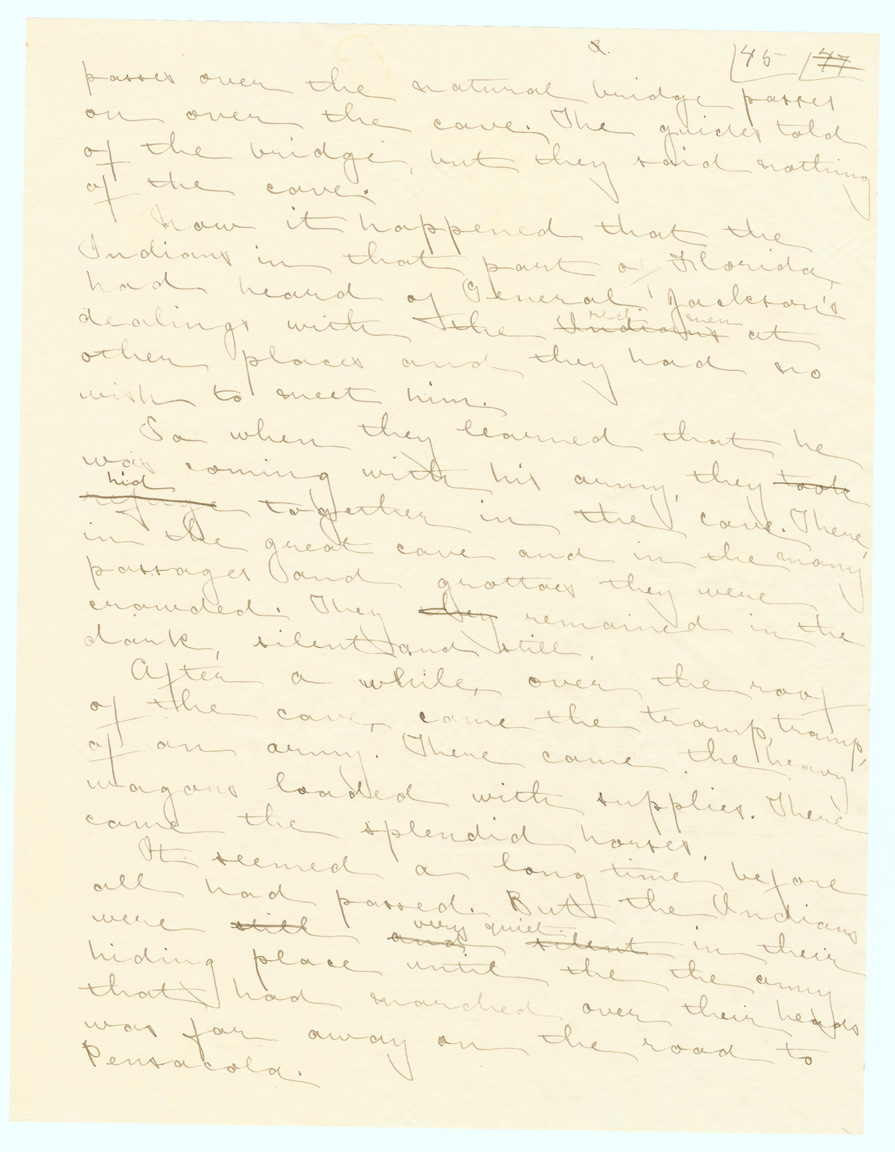 8. 45 47
passes over the natural bridge passes
on over the cave. The guides told
of the bridge, but they said nothing
of the cave.
Now it happened that the
Indians in that part of Florida,
had heard of General Jackson's
red men
dealings with the Indians at
other places and they had no
wish to meet him.
So when they learned that he
was coming with his army, they took
hid
refuge together in the cave. There,
in the great cave and in the many
passages and grottoes they were
crowded. They they remained in the
dark, silent and still.
After a while, over the roof
of the cave, came the tramp, tramp,
of an army. There came the heavy
wagons loaded with supplies. There
came the splendid horses.
It seemed a long time before
all had passed. But the Indians
very quiet
were still and silent in their
hiding place until the the army
that had marched over their heads
was far away on the road to
Pensacola.